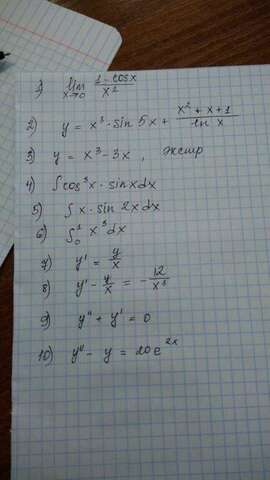 1) lim x→0 (1-cosx)/x²
2) y = x³·sin 5x + (x²+x+1)/(ln x)
3) y = x³-3x, экстр
4) ∫cos³x·sinxdx
5) ∫x·sin 2xdx
6) ∫₀¹ x³dx
7) y' = y/x
8) y' - y/x = -12/x³
9) y'' + y' = 0
10) y'' - y = 20e²ˣ